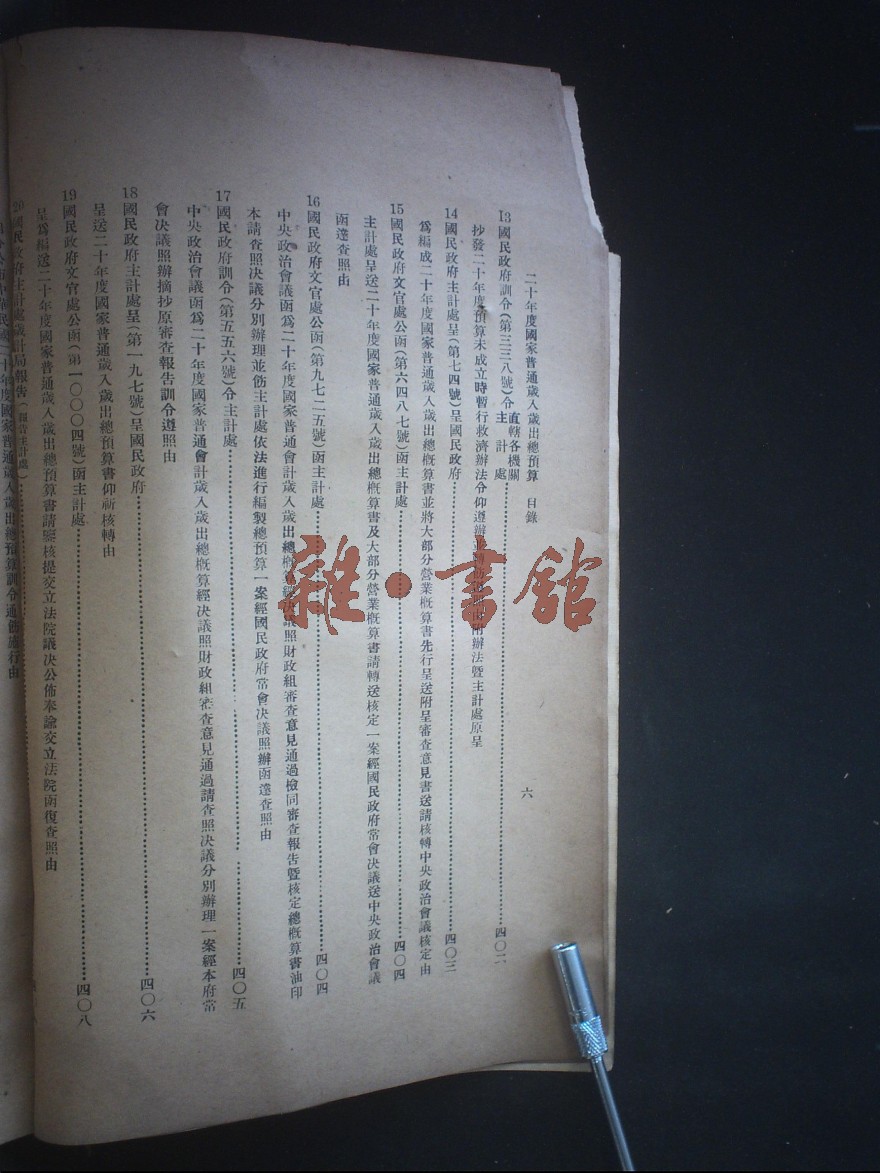 二十年度國家普通歲入歲出總預算　目錄
六
13國民政府訓令(第三三八號)令主計處直轄各機關…………四〇二
抄發二十年度預算未成立時暫行救濟辦法令仰遵辦 附辦法暨主計處原呈
14國民政府主計處呈(第七四號)呈國民政府…………四〇三
爲編成二十年度國家普通歲入歲出總概算書並將大部分營業概算書先行呈送附呈審查意見書送請核轉中央政治會議核定由
15國民政府文官處公函(第六四八七號)函主計處…………四〇四
主計處呈送二十年度國家普通歲入歲出總概算書及大部分營業概算書請轉送核定一案經國民政府常會決議送中央政治會議
函達查照由
16國民政府文官處公函(第九七二五號)函主計處…………四〇四
中央政治會議函爲二十年度國家普通會計歲入歲出總概算經決議照財政組審查意見通過檢同審查報告暨核定總概算書油印
本請查照決議分別辦理並飭主計處依法進行編製總預算一案經國民政府常會決議照辦函達查照由
17國民政府訓令(第五五六號)令主計處…………四〇五
中央政治會議函爲二十年度國家普通會計歲入歲出總概算經決議照財政組審查意見通過請查照決議分別辦理一案經本府常
會決議照辦摘抄原審查報告訓令遵照由
18國民政府主計處呈(第一九七號)呈國民政府…………四〇六
呈送二十年度國家普通歲入歲出總預算書仰祈核轉由
19國民政府文官處公函(第一〇〇〇四號)函主計處…………四〇八
呈爲編送二十年度國家普通歲入歲出總預算書請鑒核提交立法院議決公佈奉諭交立法院函復查照由
20國民政府主計處歲計局報告(報告主計處)…………
年度國家普通歲入歲出總預算訓令通飭施行由
雜·書館